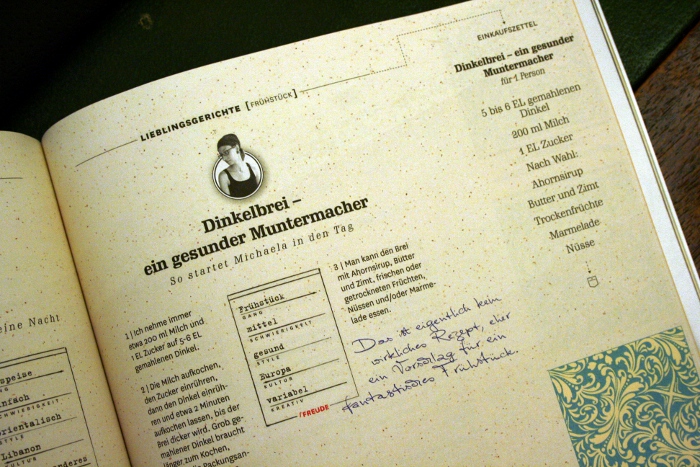 eine Nacht
speise
nfach
SCHWIERIGKEIT
rientalisch
STYLE
Libanon
KULTUR
LIEBLINGSGERICHTE [FRÜHSTÜCK]
Dinkelbrei –
ein gesunder Muntermacher
So startet Michaela in den Tag
1 | Ich nehme immer
etwa 200 ml Milch und
1 EL Zucker auf 5-6 EL
gemahlenen Dinkel.
2 | Die Milch aufkochen,
den Zucker einrühren,
dann den Dinkel einrüh-
ren und etwa 2 Minuten
aufkochen lassen, bis der
Brei dicker wird. Grob ge-
mahlener Dinkel braucht
länger zum Kochen,
Packungsan-
Frühstück
GANG
mittel
SCHWIERIGKEIT
gesund
STYLE
Europa
KULTUR
variabel
KREATIV
/FREUDE
3 | Man kann den Brei
mit Ahornsirup, Butter
und Zimt, frischen oder
getrockneten Früchten,
Nüssen und/oder Marme-
lade essen.
Das ist eigentlich kein
wirkliches Rezept, eher
ein Vorschlag für ein
fantastisches Frühstück.
EINKAUFSZETTEL
Dinkelbrei – ein gesunder
Muntermacher
für 1 Person
5 bis 6 EL gemahlenen
Dinkel
200 ml Milch
1 EL Zucker
Nach Wahl:
Ahornsirup
Butter und Zimt
Trockenfrüchte
Marmelade
Nüsse